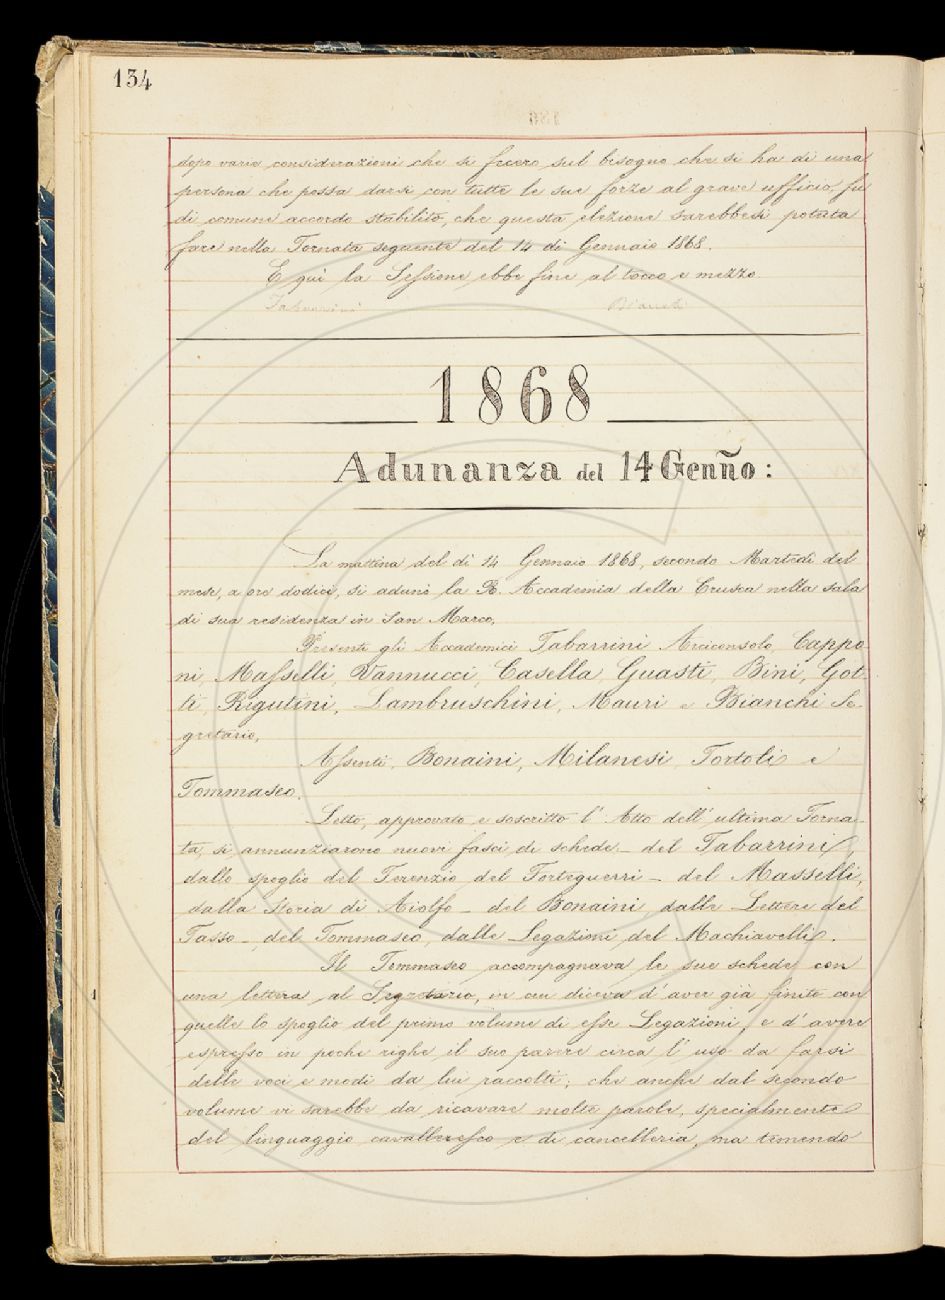 134
dopo varie considerazioni che si fecero sul bisogno che si ha di una
persona che possa darsi con tutte le sue forze al grave ufficio, fu
di comune accordo stabilito, che questa elezione sarebbesi potuta
fare nella Tornata seguente del 14 di Gennaio 1868.
E quì la Sessione ebbe fine al tocco e mezzo.
Tabarrini Bianchi
1868
Adunanza del 14 Genño:
La mattina del dì 14 Gennaio 1868, secondo Martedì del
mese, a ore dodici, si adunò la R. Accademia della Crusca nella sala
di sua residenza in San Marco.
Presenti gli Accademici Tabarrini Arciconsolo, Cappo
ni, Masselli, Vannucci, Casella, Guasti, Bini, Got-
ti, Rigutini, Lambruschini, Mauri e Bianchi Se-
gretario.
Assenti, Bonaini, Milanesi, Tortoli e
Tommaseo.
Letto, approvato e soscritto l'Atto dell'ultima Torna-
ta, si annunziarono nuovi fasci di schede - del Tabarrini,
dallo spoglio del Terenzio del Forteguerri - del Masselli,
dalla Storia di Aiolfo - del Bonaini dalle Lettere del
Tasso - del Tommaseo, dalle Legazioni del Machiavelli.
Il Tommaseo accompagnava le sue schede con
una lettera al Segretario, in cui diceva d'aver già finito con
quelle lo spoglio del primo volume di esse Legazioni, e d'avere
espresso in poche righe il suo parere circa l'uso da farsi
delle voci e modi da lui raccolti; che anche dal secondo
volume vi sarebbe da ricavare molte parole, specialmente
del linguaggio cavalleresco e di cancelleria, ma temendo